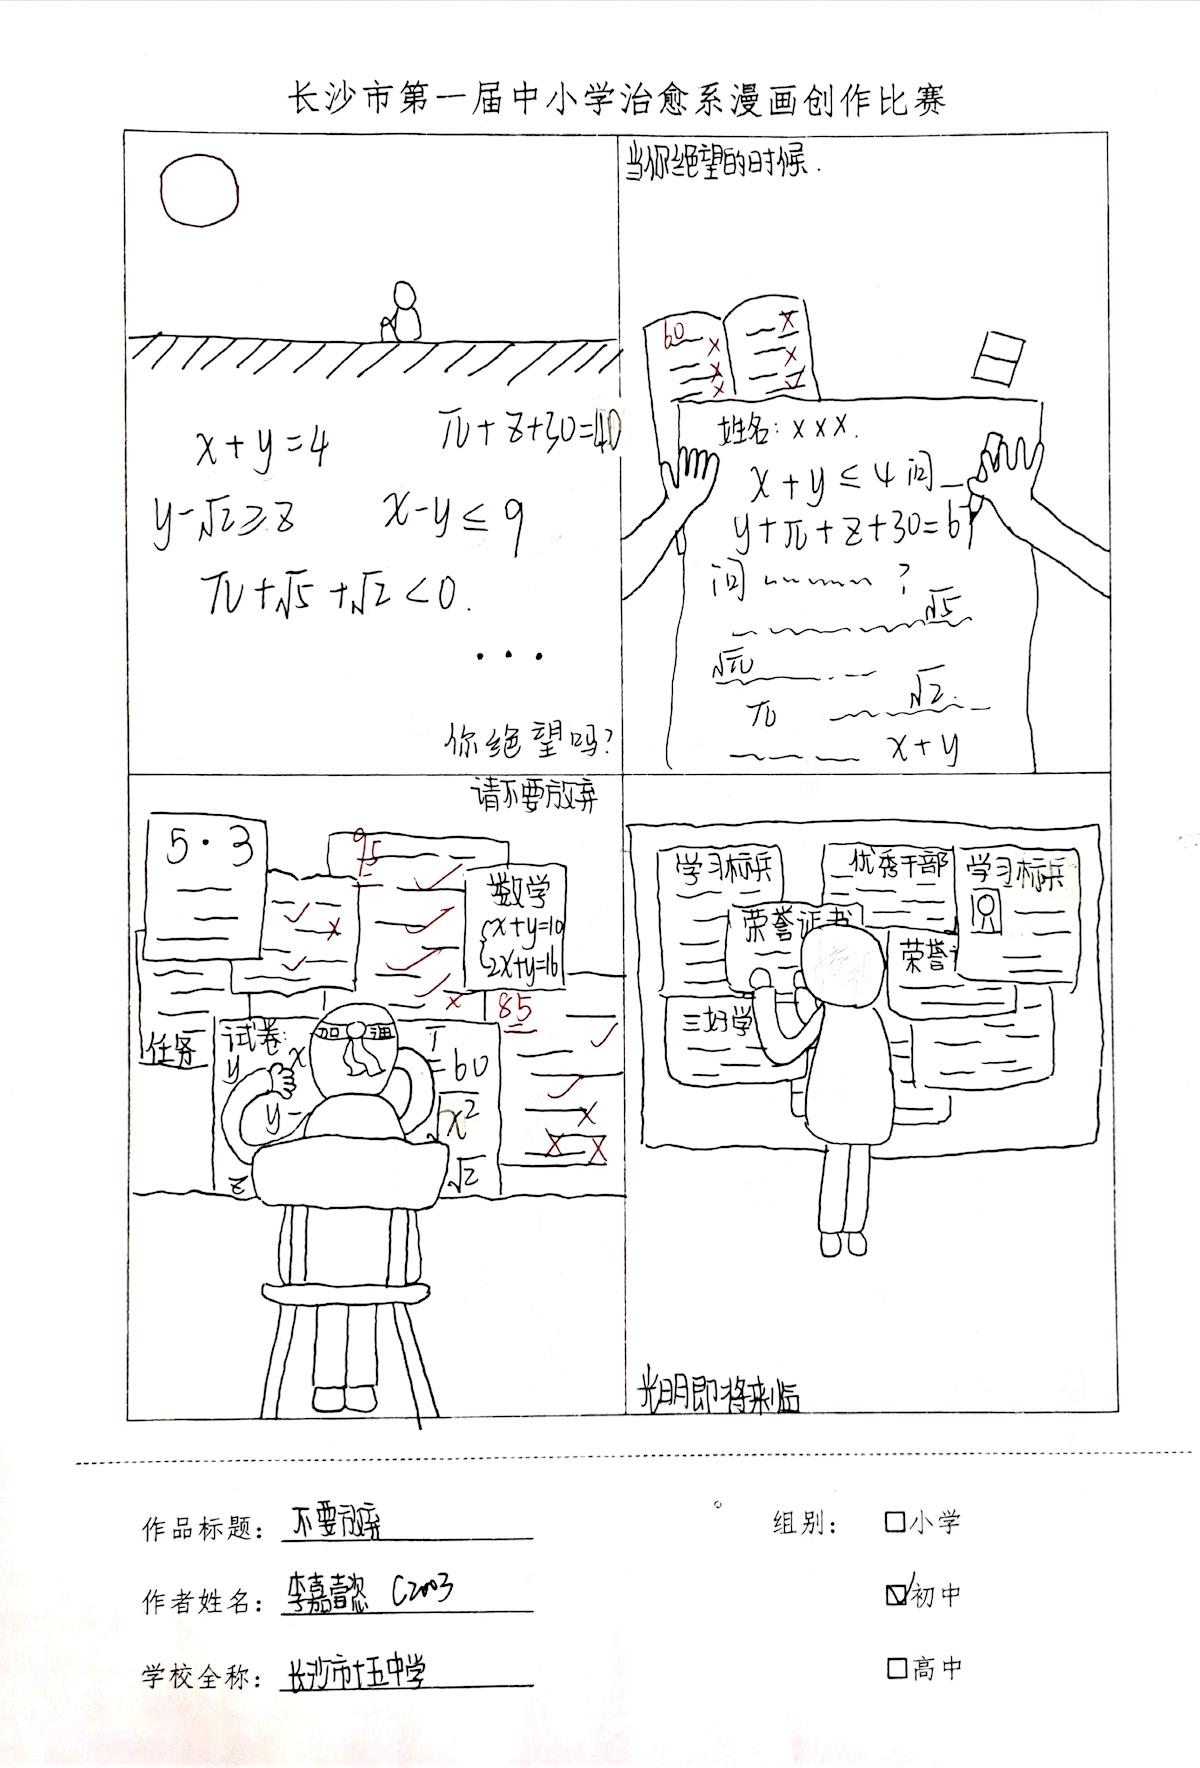 长沙市第一届中小学治愈系漫画创作比赛
x+y=4
π+z+30=40
y-√2≥z
x-y≤9
π+√5+√2<0.
...
你绝望吗?
当你绝望的时候.
60
姓名: x x x.
x+y≤4问
y+π+z+30=6
问 ?
√5
√π
π
√2.
x+y
请不要放弃
5·3
95
数学
x+y=10
2x+y=16
85
任务
试卷:
y x
加油
=60
y-
x²
z
√2
学习标兵
优秀干部
学习标兵
荣誉证书
荣誉
三好学
光明即将来临
作品标题: 不要放弃
组别: 小学
作者姓名: 李嘉懿 C2003
初中
学校全称: 长沙市十五中学
高中